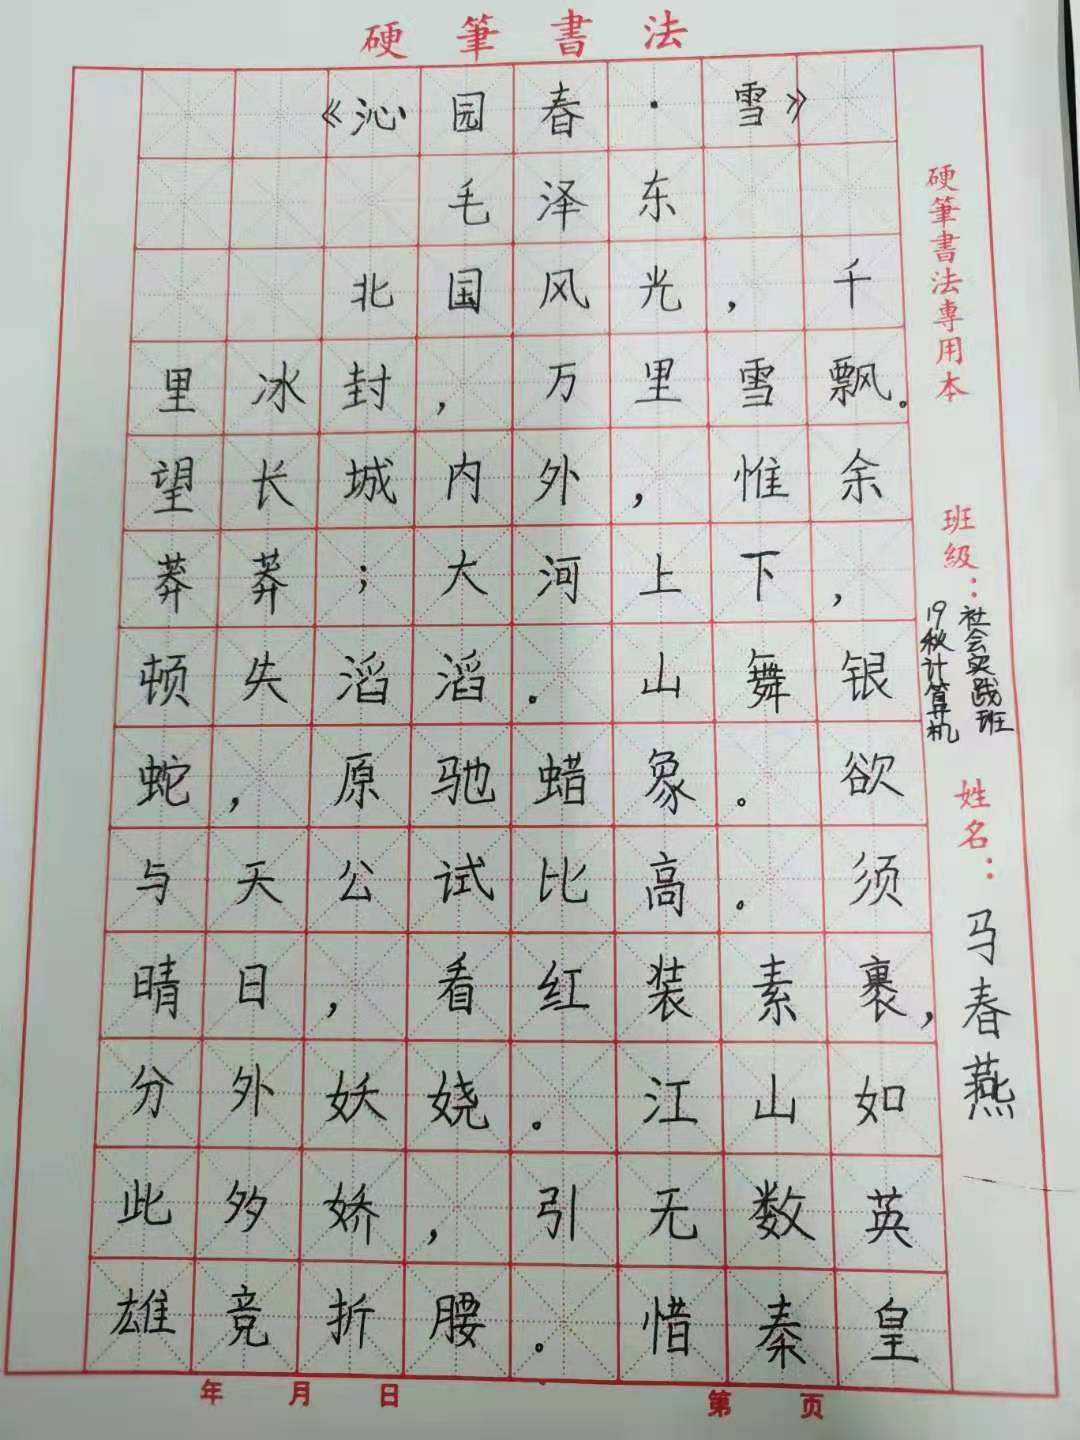 硬筆書法
《沁园春·雪》
毛泽东
北国风光，千
里冰封，万里雪飘。
望长城内外，惟余
莽莽；大河上下，
顿失滔滔。山舞银
蛇，原驰蜡象。欲
与天公试比高。须
晴日，看红装素裹，
分外妖娆。江山如
此多娇，引无数英
雄竞折腰。惜秦皇
年 月 日 第 页
硬筆書法專用本
班級：
社会实践班
19秋计算机
姓名：马春燕